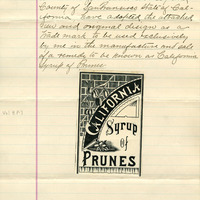 County of San Francisco State of Cal-
ifornia have adopted the attached
new and original design as a
Trade mark to be used exclusively
by me in the manufacture and sale
of a remedy to be known as California
Syrup of Prunes
CALIFORNIA
Syrup
Of
PRUNES